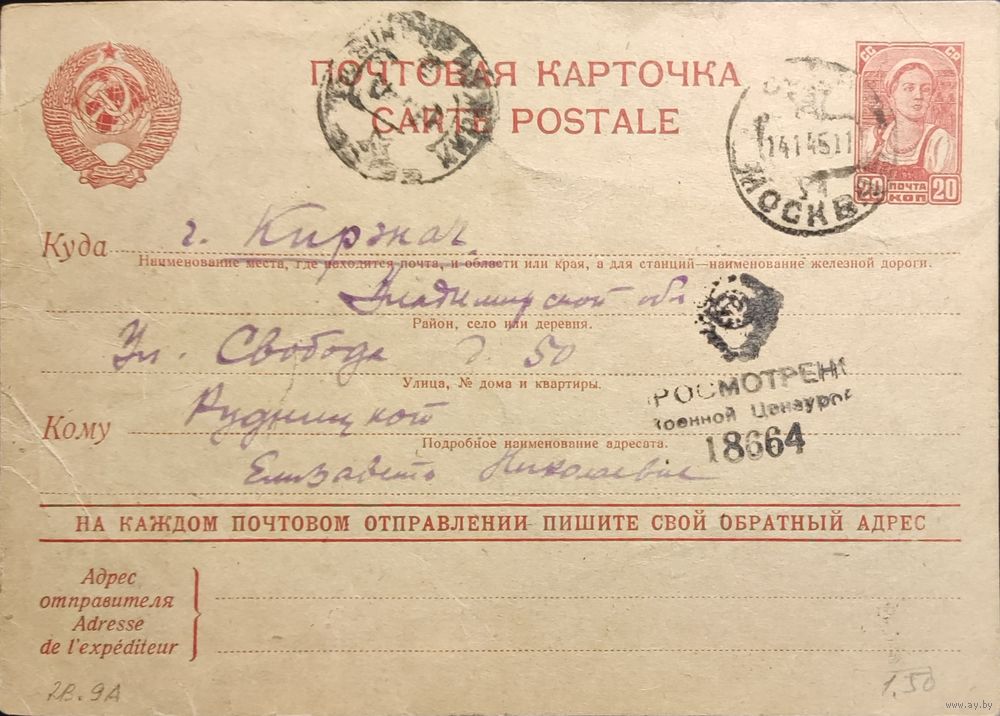 ПОЧТОВАЯ КАРТОЧКА
CARTE POSTALE
СС СР
20 ПОЧТА 20
КОП
14 1 45 11
МОСКВА
Куда г. Киржач
Наименование места, где находится почта, и области или края, а для станций—наименование железной дороги.
Владимирской обл
Район, село или деревня.
Ул. Свобода д. 50
Улица, № дома и квартиры.
Кому Рудницкой
Подробное наименование адресата.
Елизавете Николаевне
РОСМОТРЕН
Военной Цензурой
18664
НА КАЖДОМ ПОЧТОВОМ ОТПРАВЛЕНИИ ПИШИТЕ СВОЙ ОБРАТНЫЙ АДРЕС
Адрес
отправителя
Adresse
de l'expéditeur
2В. 9А
1.50
www.ay.by